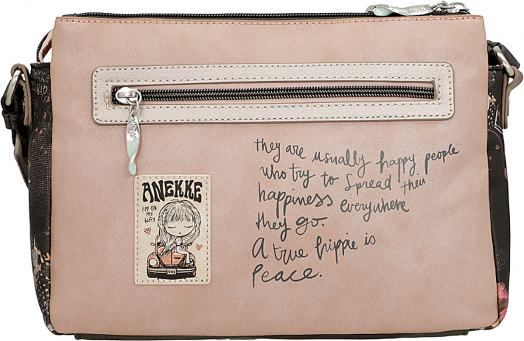 ANEKKE
I'M ON
MY
WAY
they are usually happy people
who try to spread their
happiness everywhere
they go.
A true hippie is
Peace.